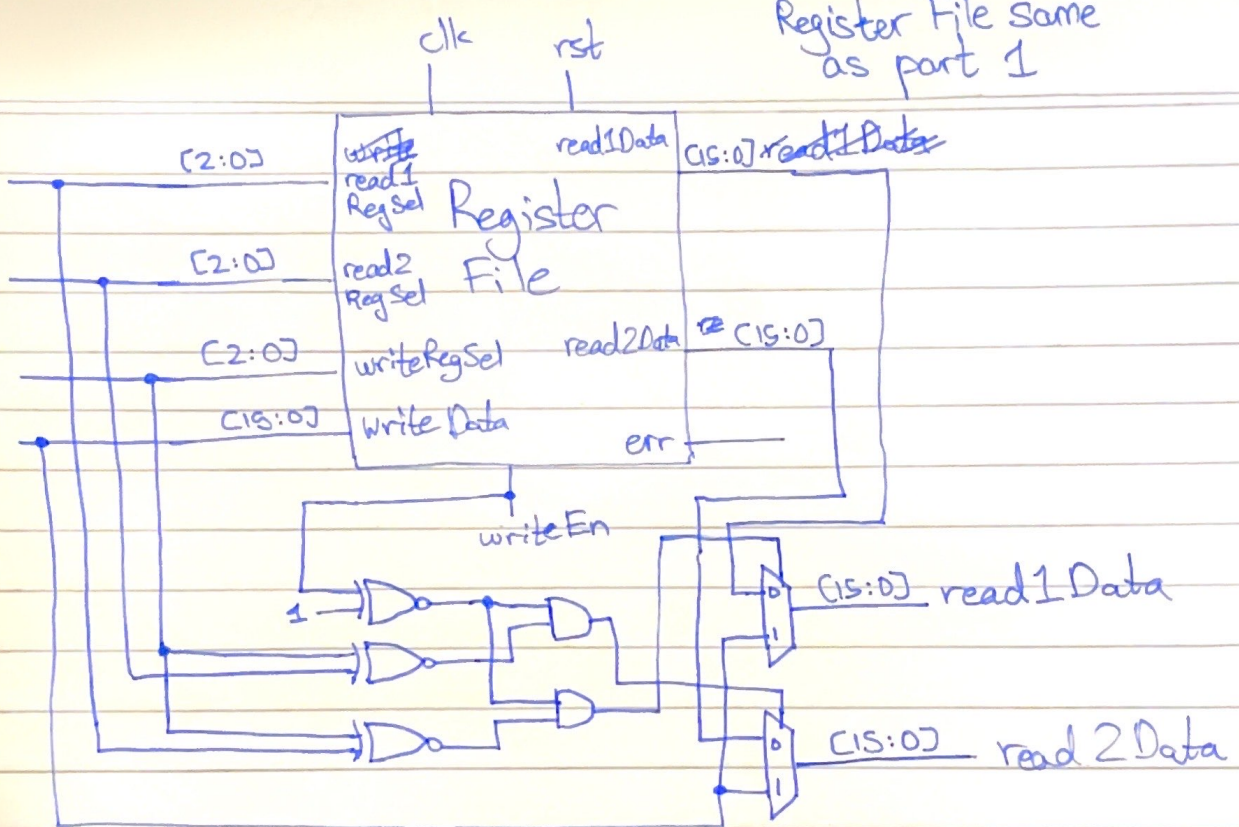 Register File same
as part 1
clk
rst
[2:0]
write
read1
RegSel
Register
File
read1Data
[15:0] read1Data
[2:0]
read2
RegSel
[2:0]
writeRegSel
read2Data
[15:0]
[15:0]
writeData
err
writeEn
1
0
1
[15:0] read1Data
0
1
[15:0] read2Data